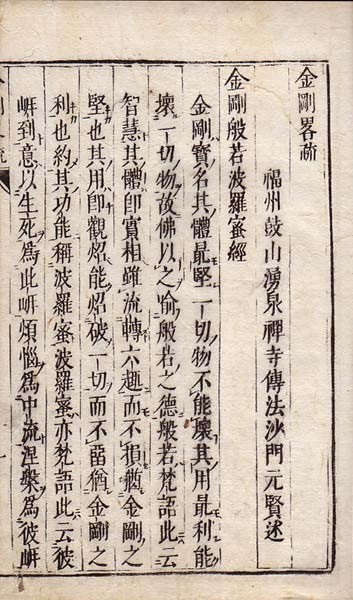 金剛畧疏
福州鼓山湧泉禪寺傳法沙門元賢述
金剛般若波羅蜜經
金剛寶名其體最堅一切物不能壞其用最利能
壞一切物故佛以之喻般若之德般若梵語此云
智慧其體即實相雖流轉六趣而不損猶金剛之
堅也其用即觀炤能炤破一切而不留猶金剛之
利也約其功能稱波羅蜜波羅蜜亦梵語此云彼
岍到意以生死爲此岍煩惱爲中流涅槃爲彼岍